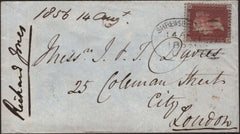 1856 14 Augt.
Richard Jones
SHREWSBURY
Messrs. J. & T. Davies
25 Coleman Street
City
London